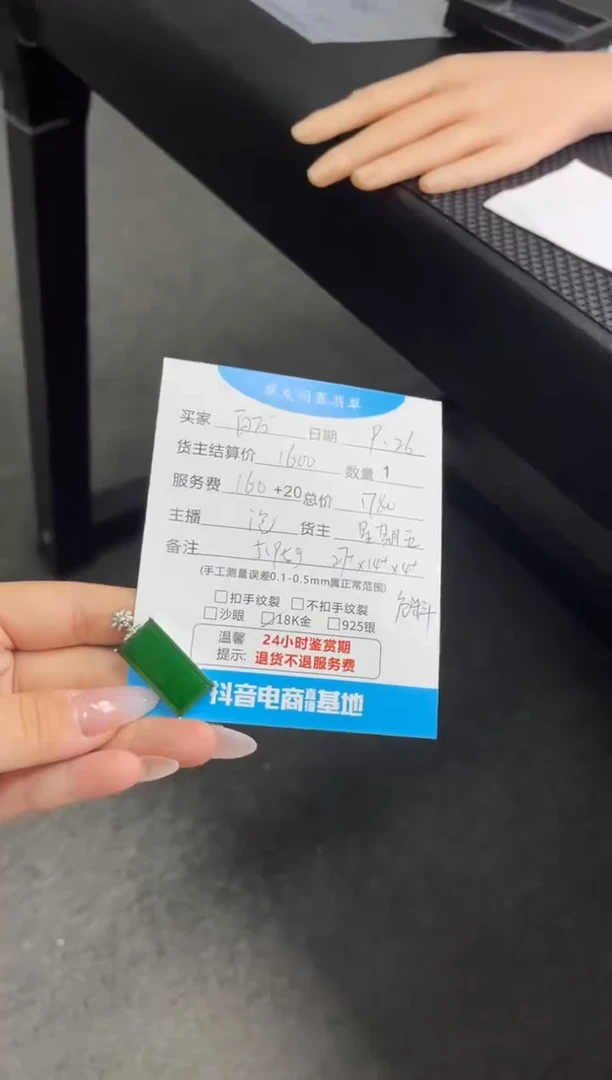 翡翠
买家 百万 日期 9.26
货主结算价 1600 数量 1
服务费 160 +20 总价 1780
主播 货主 星期五
备注
(手工测量误差0.1-0.5mm属正常范围)
扣手纹裂 不扣手纹裂
沙眼 18K金 925银
温馨 24小时鉴赏期
提示: 退货不退服务费
抖音电商直播基地